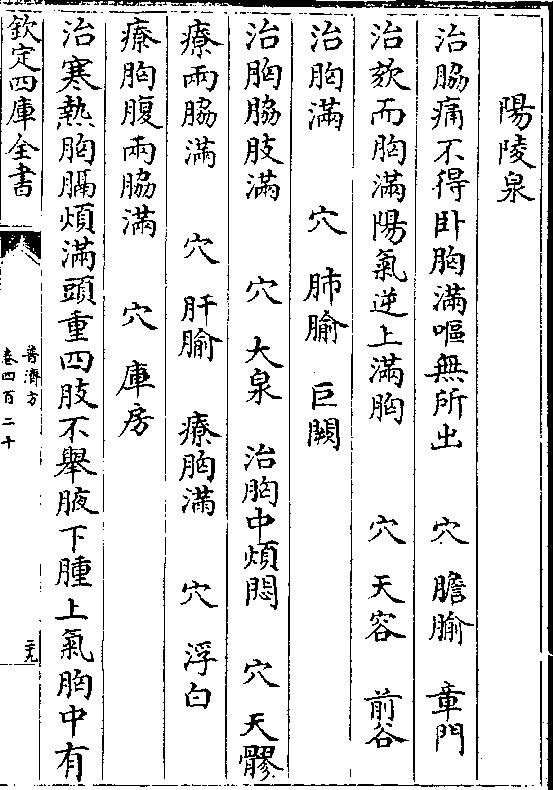 陽陵泉
治脇痛不得卧胸滿嘔無所出　穴　膽腧　章門
治欬而胸滿陽氣逆上滿胸　穴　天容　前谷
治胸滿　穴　肺腧　巨闕
治胸脇肢滿　穴　大泉　治胸中煩悶　穴　天髎
療兩脇滿　穴　肝腧　療胸滿　穴　浮白
療胸腹兩脇滿　穴　庫房
治寒熱胸膈煩滿頭重四肢不舉腋下腫上氣胸中有
欽定四庫全書
普濟方
卷四百二十
三九